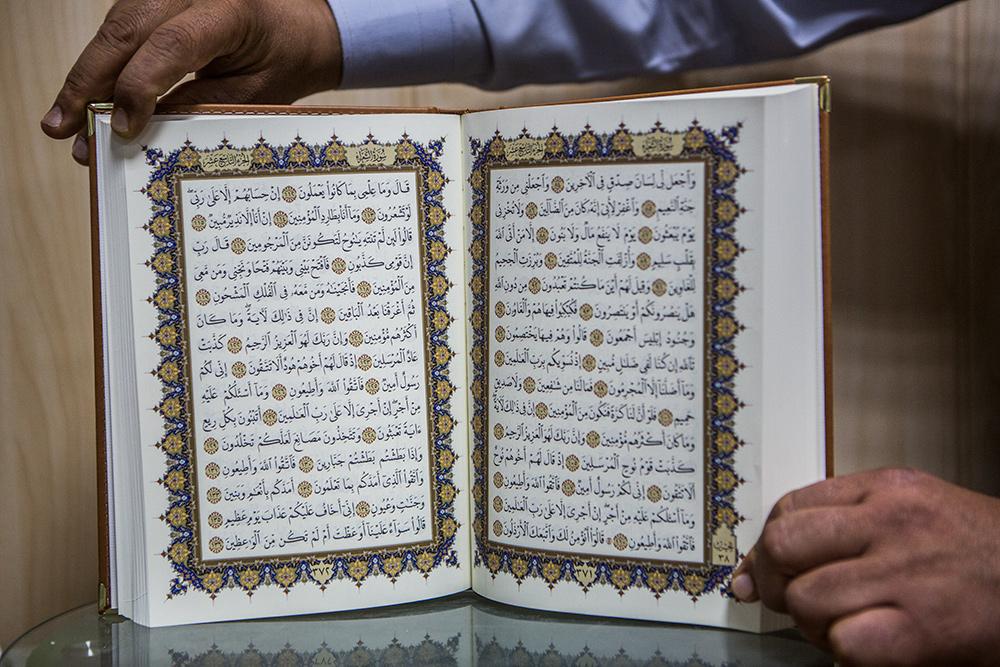 الجزء التاسع عشر سورة الشعراء
وَاجْعَل لِّى لِسَانَ صِدْقٍ فِى الْآخِرِينَ ﴿٨٤﴾ وَاجْعَلْنِى مِن وَرَثَةِ
جَنَّةِ النَّعِيمِ ﴿٨٥﴾ وَاغْفِرْ لِأَبِى إِنَّهُ كَانَ مِنَ الضَّالِّينَ ﴿٨٦﴾ وَلَا تُخْزِنِى
يَوْمَ يُبْعَثُونَ ﴿٨٧﴾ يَوْمَ لَا يَنفَعُ مَالٌ وَلَا بَنُونَ ﴿٨٨﴾ إِلَّا مَنْ أَتَى اللَّهَ
بِقَلْبٍ سَلِيمٍ ﴿٨٩﴾ وَأُزْلِفَتِ الْجَنَّةُ لِلْمُتَّقِينَ ﴿٩٠﴾ وَبُرِّزَتِ الْجَحِيمُ
لِلْغَاوِينَ ﴿٩١﴾ وَقِيلَ لَهُمْ أَيْنَ مَا كُنتُمْ تَعْبُدُونَ ﴿٩٢﴾ مِن دُونِ اللَّهِ
هَلْ يَنصُرُونَكُمْ أَوْ يَنتَصِرُونَ ﴿٩٣﴾ فَكُبْكِبُوا فِيهَا هُمْ وَالْغَاوُونَ ﴿٩٤﴾
وَجُنُودُ إِبْلِيسَ أَجْمَعُونَ ﴿٩٥﴾ قَالُوا وَهُمْ فِيهَا يَخْتَصِمُونَ ﴿٩٦﴾
تَاللَّهِ إِن كُنَّا لَفِى ضَلَالٍ مُّبِينٍ ﴿٩٧﴾ إِذْ نُسَوِّيكُم بِرَبِّ الْعَالَمِينَ ﴿٩٨﴾
وَمَا أَضَلَّنَا إِلَّا الْمُجْرِمُونَ ﴿٩٩﴾ فَمَا لَنَا مِن شَافِعِينَ ﴿١٠٠﴾ وَلَا صَدِيقٍ
حَمِيمٍ ﴿١٠١﴾ فَلَوْ أَنَّ لَنَا كَرَّةً فَنَكُونَ مِنَ الْمُؤْمِنِينَ ﴿١٠٢﴾ إِنَّ فِى ذَٰلِكَ لَآيَةً
وَمَا كَانَ أَكْثَرُهُم مُّؤْمِنِينَ ﴿١٠٣﴾ وَإِنَّ رَبَّكَ لَهُوَ الْعَزِيزُ الرَّحِيمُ ﴿١٠٤﴾
كَذَّبَتْ قَوْمُ نُوحٍ الْمُرْسَلِينَ ﴿١٠٥﴾ إِذْ قَالَ لَهُمْ أَخُوهُمْ نُوحٌ
أَلَا تَتَّقُونَ ﴿١٠٦﴾ إِنِّى لَكُمْ رَسُولٌ أَمِينٌ ﴿١٠٧﴾ فَاتَّقُوا اللَّهَ وَأَطِيعُونِ ﴿١٠٨﴾
وَمَا أَسْئَلُكُمْ عَلَيْهِ مِنْ أَجْرٍ إِنْ أَجْرِىَ إِلَّا عَلَىٰ رَبِّ الْعَالَمِينَ ﴿١٠٩﴾
فَاتَّقُوا اللَّهَ وَأَطِيعُونِ ﴿١١٠﴾ قَالُوا أَنُؤْمِنُ لَكَ وَاتَّبَعَكَ الْأَرْذَلُونَ ﴿١١١﴾
حزب
٣٨
٣٧١
الجزء التاسع عشر سورة الشعراء
قَالَ وَمَا عِلْمِى بِمَا كَانُوا يَعْمَلُونَ ﴿١١٢﴾ إِنْ حِسَابُهُمْ إِلَّا عَلَىٰ رَبِّى
لَوْ تَشْعُرُونَ ﴿١١٣﴾ وَمَا أَنَا بِطَارِدِ الْمُؤْمِنِينَ ﴿١١٤﴾ إِنْ أَنَا إِلَّا نَذِيرٌ مُّبِينٌ ﴿١١٥﴾
قَالُوا لَئِن لَّمْ تَنتَهِ يَا نُوحُ لَتَكُونَنَّ مِنَ الْمَرْجُومِينَ ﴿١١٦﴾ قَالَ رَبِّ
إِنَّ قَوْمِى كَذَّبُونِ ﴿١١٧﴾ فَافْتَحْ بَيْنِى وَبَيْنَهُمْ فَتْحًا وَنَجِّنِى وَمَن مَّعِىَ
مِنَ الْمُؤْمِنِينَ ﴿١١٨﴾ فَأَنجَيْنَاهُ وَمَن مَّعَهُ فِى الْفُلْكِ الْمَشْحُونِ ﴿١١٩﴾
ثُمَّ أَغْرَقْنَا بَعْدُ الْبَاقِينَ ﴿١٢٠﴾ إِنَّ فِى ذَٰلِكَ لَآيَةً وَمَا كَانَ
أَكْثَرُهُم مُّؤْمِنِينَ ﴿١٢١﴾ وَإِنَّ رَبَّكَ لَهُوَ الْعَزِيزُ الرَّحِيمُ ﴿١٢٢﴾ كَذَّبَتْ
عَادٌ الْمُرْسَلِينَ ﴿١٢٣﴾ إِذْ قَالَ لَهُمْ أَخُوهُمْ هُودٌ أَلَا تَتَّقُونَ ﴿١٢٤﴾ إِنِّى لَكُمْ
رَسُولٌ أَمِينٌ ﴿١٢٥﴾ فَاتَّقُوا اللَّهَ وَأَطِيعُونِ ﴿١٢٦﴾ وَمَا أَسْئَلُكُمْ عَلَيْهِ
مِنْ أَجْرٍ إِنْ أَجْرِىَ إِلَّا عَلَىٰ رَبِّ الْعَالَمِينَ ﴿١٢٧﴾ أَتَبْنُونَ بِكُلِّ رِيعٍ
ءَايَةً تَعْبَثُونَ ﴿١٢٨﴾ وَتَتَّخِذُونَ مَصَانِعَ لَعَلَّكُمْ تَخْلُدُونَ ﴿١٢٩﴾
وَإِذَا بَطَشْتُم بَطَشْتُمْ جَبَّارِينَ ﴿١٣٠﴾ فَاتَّقُوا اللَّهَ وَأَطِيعُونِ ﴿١٣١﴾
وَاتَّقُوا الَّذِى أَمَدَّكُم بِمَا تَعْلَمُونَ ﴿١٣٢﴾ أَمَدَّكُم بِأَنْعَامٍ وَبَنِينَ ﴿١٣٣﴾
وَجَنَّاتٍ وَعُيُونٍ ﴿١٣٤﴾ إِنِّى أَخَافُ عَلَيْكُمْ عَذَابَ يَوْمٍ عَظِيمٍ ﴿١٣٥﴾
قَالُوا سَوَاءٌ عَلَيْنَا أَوَعَظْتَ أَمْ لَمْ تَكُن مِّنَ الْوَاعِظِينَ ﴿١٣٦﴾
٣٧٢